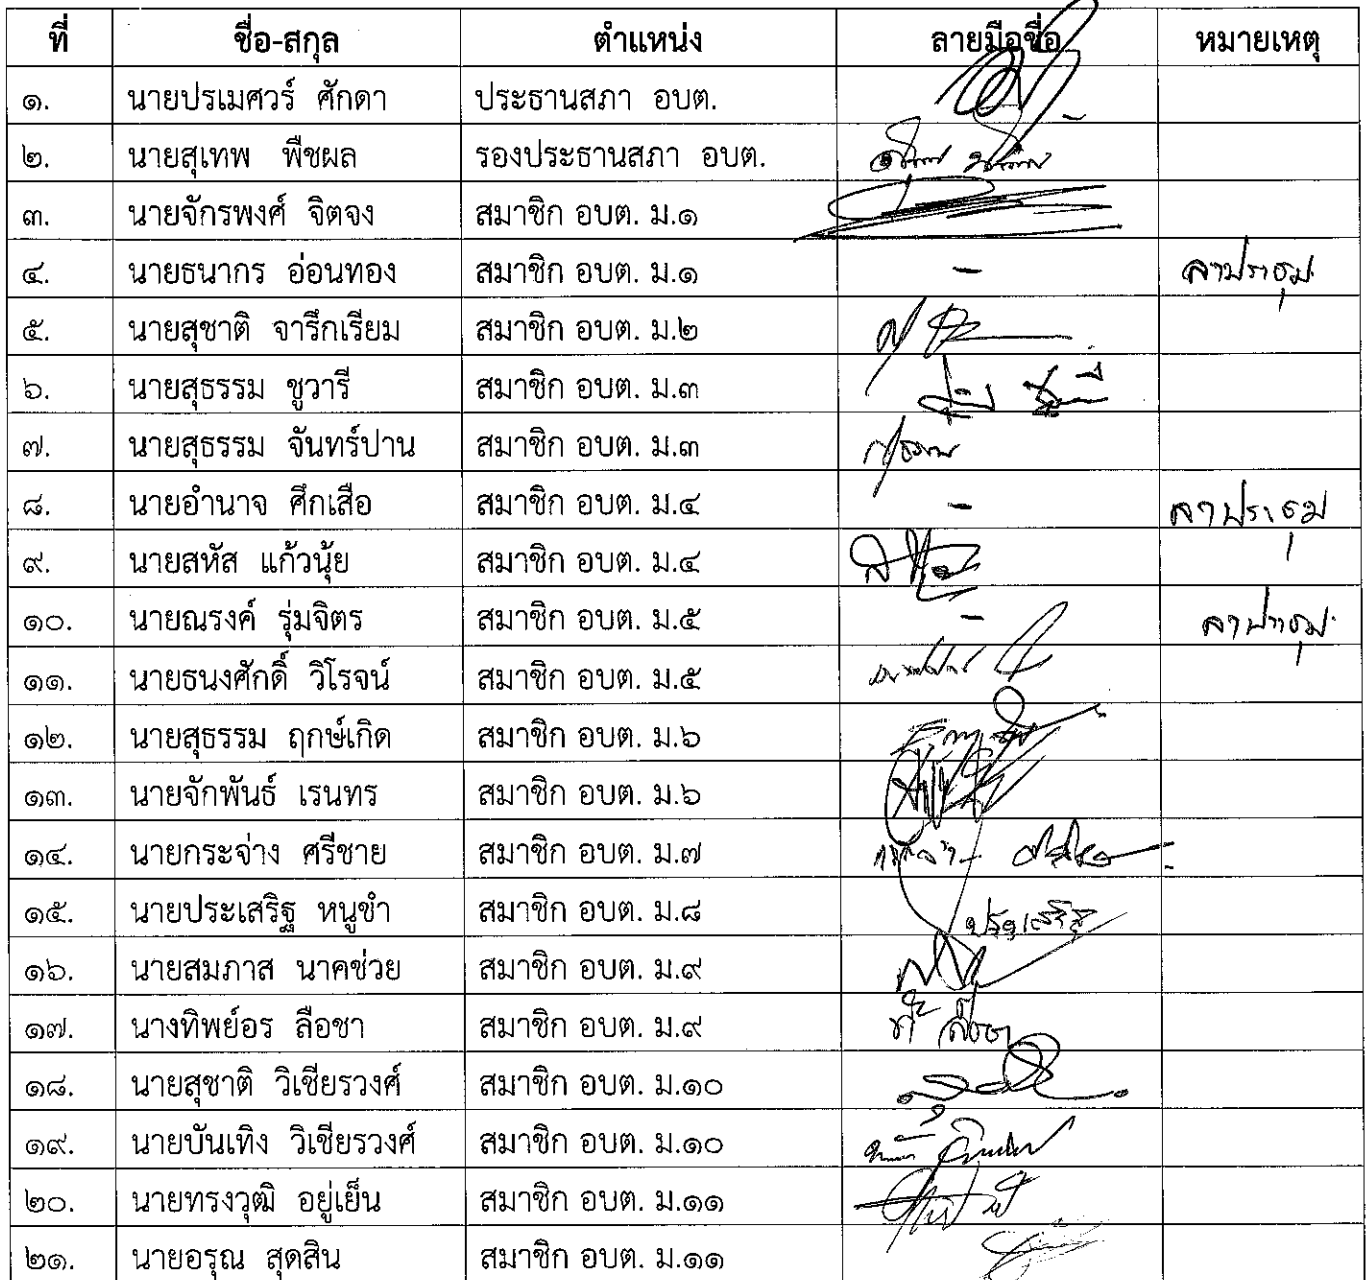 ที่ ชื่อ-สกุล ตำแหน่ง ลายมือชื่อ หมายเหตุ
๑. นายปรเมศวร์ ศักดา ประธานสภา อบต.
๒. นายสุเทพ พืชผล รองประธานสภา อบต.
๓. นายจักรพงศ์ จิตจง สมาชิก อบต. ม.๑
๔. นายธนากร อ่อนทอง สมาชิก อบต. ม.๑ - ลาประชุม
๕. นายสุชาติ จารึกเรียม สมาชิก อบต. ม.๒
๖. นายสุธรรม ชูวารี สมาชิก อบต. ม.๓
๗. นายสุธรรม จันทร์ปาน สมาชิก อบต. ม.๓ สุธรรม
๘. นายอำนาจ ศึกเสือ สมาชิก อบต. ม.๔ - ลาประชุม
๙. นายสหัส แก้วนุ้ย สมาชิก อบต. ม.๔
๑๐. นายณรงค์ รุ่มจิตร สมาชิก อบต. ม.๕ - ลาประชุม
๑๑. นายธนงศักดิ์ วิโรจน์ สมาชิก อบต. ม.๕
๑๒. นายสุธรรม ฤกษ์เกิด สมาชิก อบต. ม.๖
๑๓. นายจักพันธ์ เรนทร สมาชิก อบต. ม.๖
๑๔. นายกระจ่าง ศรีชาย สมาชิก อบต. ม.๗
๑๕. นายประเสริฐ หนูขำ สมาชิก อบต. ม.๘ ประเสริฐ
๑๖. นายสมภาส นาคช่วย สมาชิก อบต. ม.๙
๑๗. นางทิพย์อร ลือชา สมาชิก อบต. ม.๙
๑๘. นายสุชาติ วิเชียรวงศ์ สมาชิก อบต. ม.๑๐
๑๙. นายบันเทิง วิเชียรวงศ์ สมาชิก อบต. ม.๑๐
๒๐. นายทรงวุฒิ อยู่เย็น สมาชิก อบต. ม.๑๑
๒๑. นายอรุณ สุดสิน สมาชิก อบต. ม.๑๑